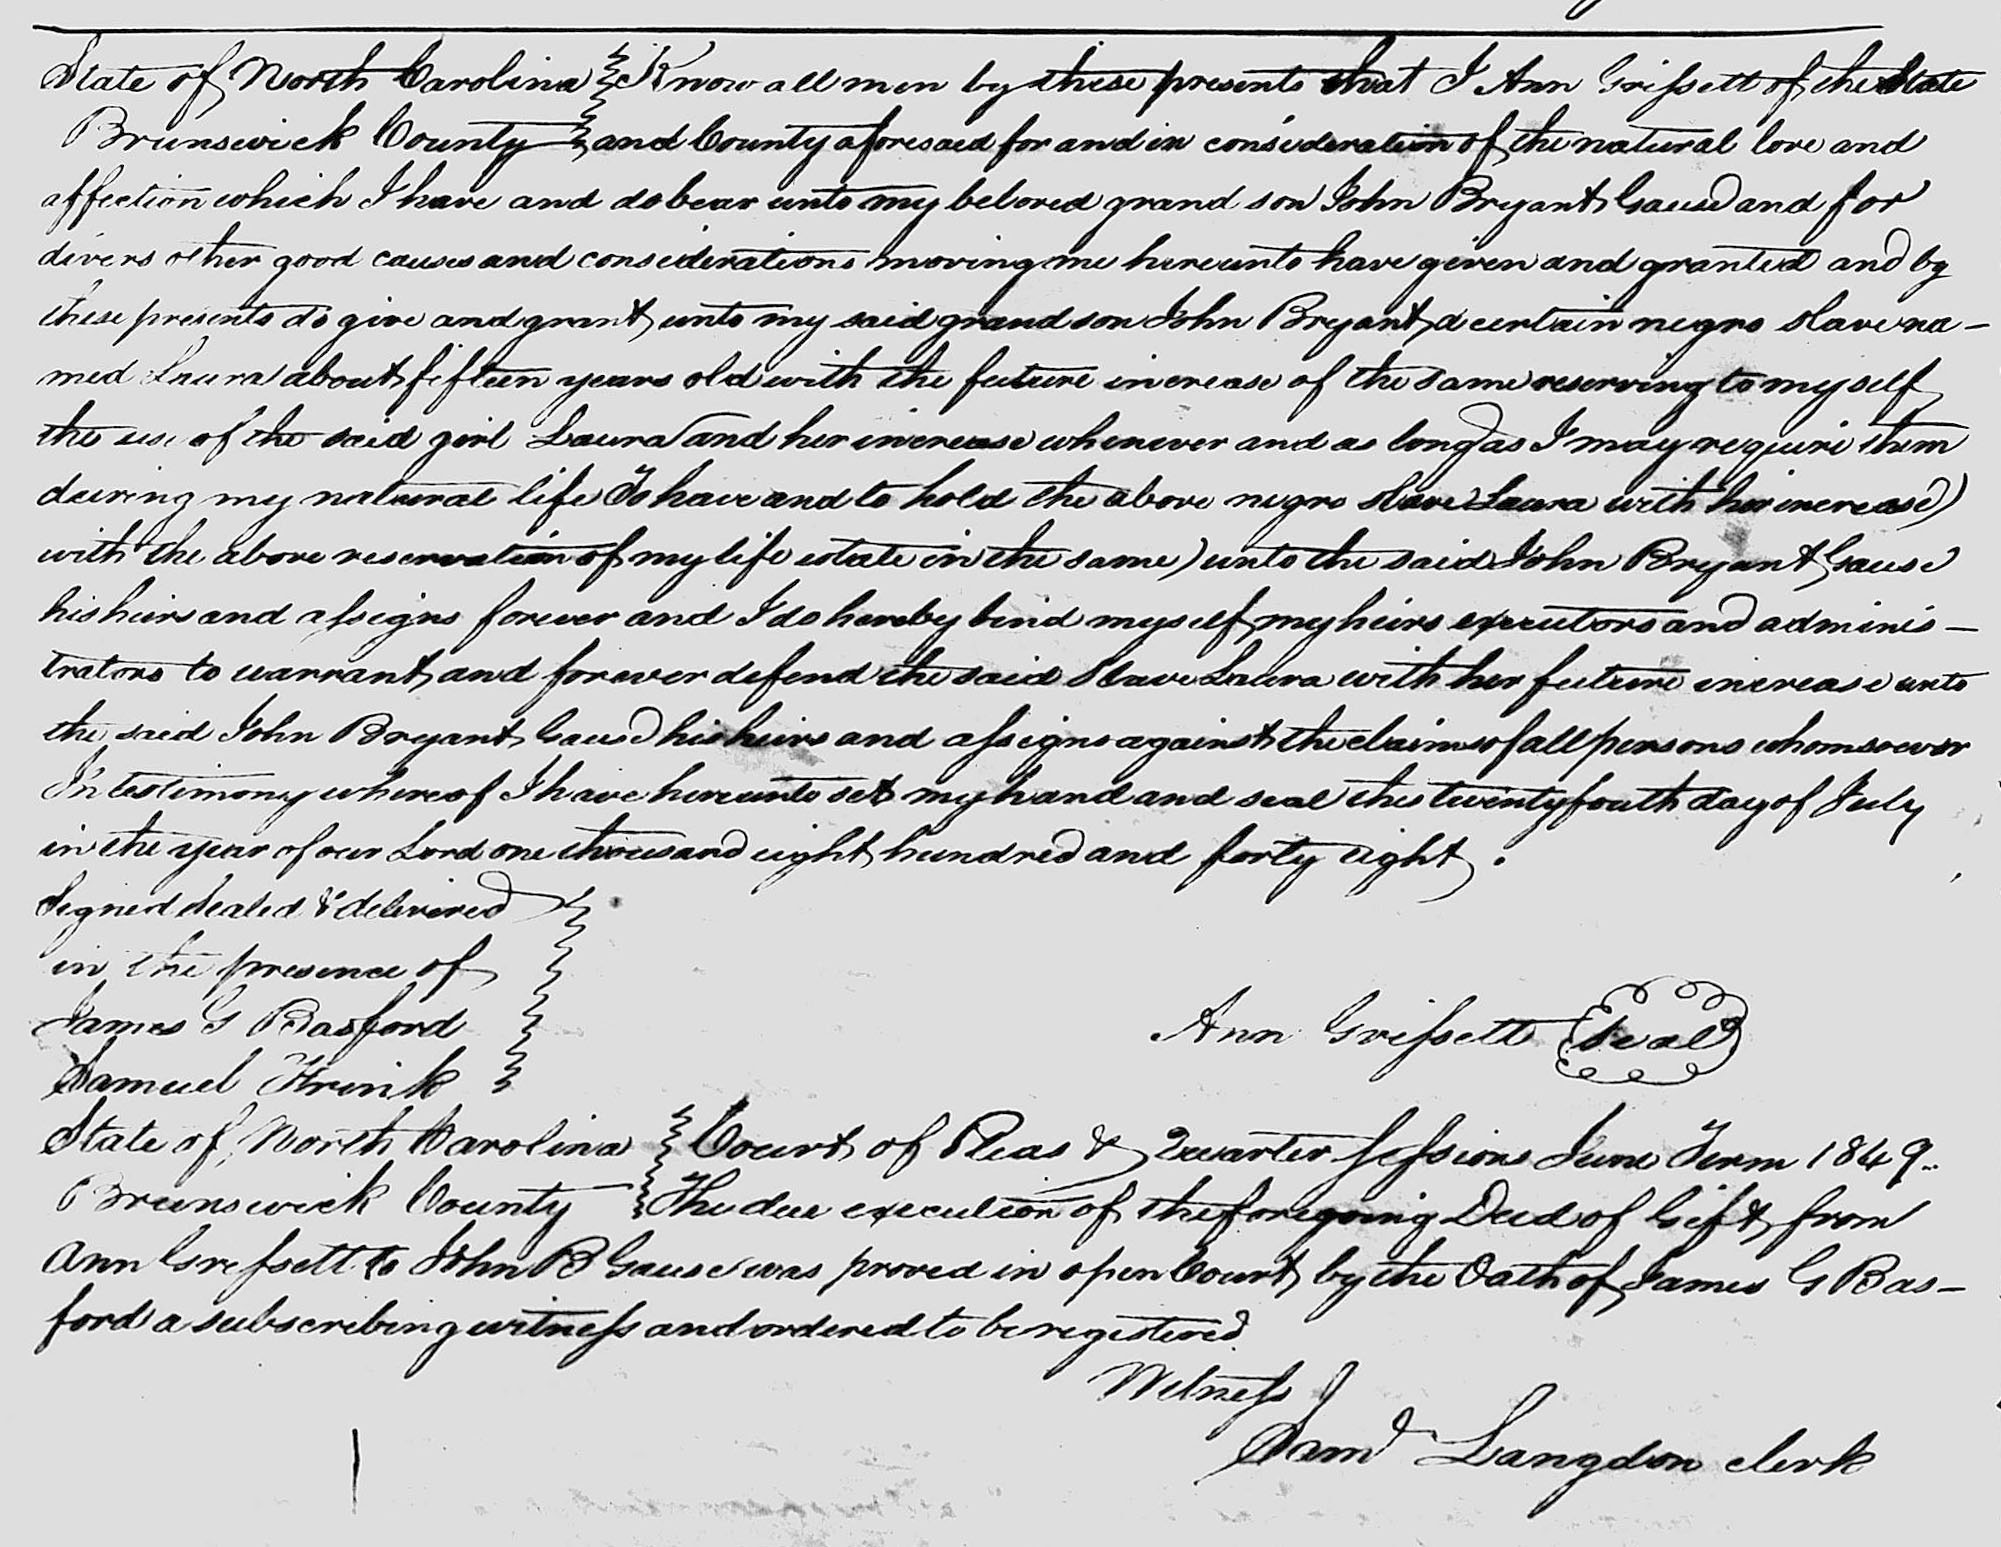 State of North Carolina } Know all men by these presents that I Ann Grissett of the State
Brunswick County } and County aforesaid for and in consideration of the natural love and
affection which I have and do bear unto my beloved grand son John Bryant Gause and for
divers other good causes and considerations moving me hereunto have given and granted and by
these presents do give and grant unto my said grand son John Bryant a certain negro slave na-
med Laura about fifteen years old with the future increase of the same reserving to myself
the use of the said girl Laura and her increase whenever and as long as I may require them
during my natural life To have and to hold the above negro slave Laura with her increase)
with the above reservation of my life estate in the same) unto the said John Bryant Gause
his heirs and assigns forever and I do hereby bind myself my heirs executors and adminis-
trators to warrant and forever defend the said slave Laura with her future increase unto
the said John Bryant Gause his heirs and assigns against the claims of all persons whomsoever
In testimony whereof I have hereunto set my hand and seal this twenty fouth day of July
in the year of our Lord one thousand eight hundred and forty eight.
Signed sealed & delivered }
in the presence of }
James G Basford } Ann Grissett (seal)
Samuel Frink }
State of North Carolina } Court of Pleas & Quarter sessions June Term 1849..
Brunswick County } The due execution of the foregoing Deed of Gift from
Ann Grissett to John B Gause was proved in open Court by the Oath of James G Bas-
ford a subscribing witness and ordered to be registered.
Witness
Saml Langdon clerk